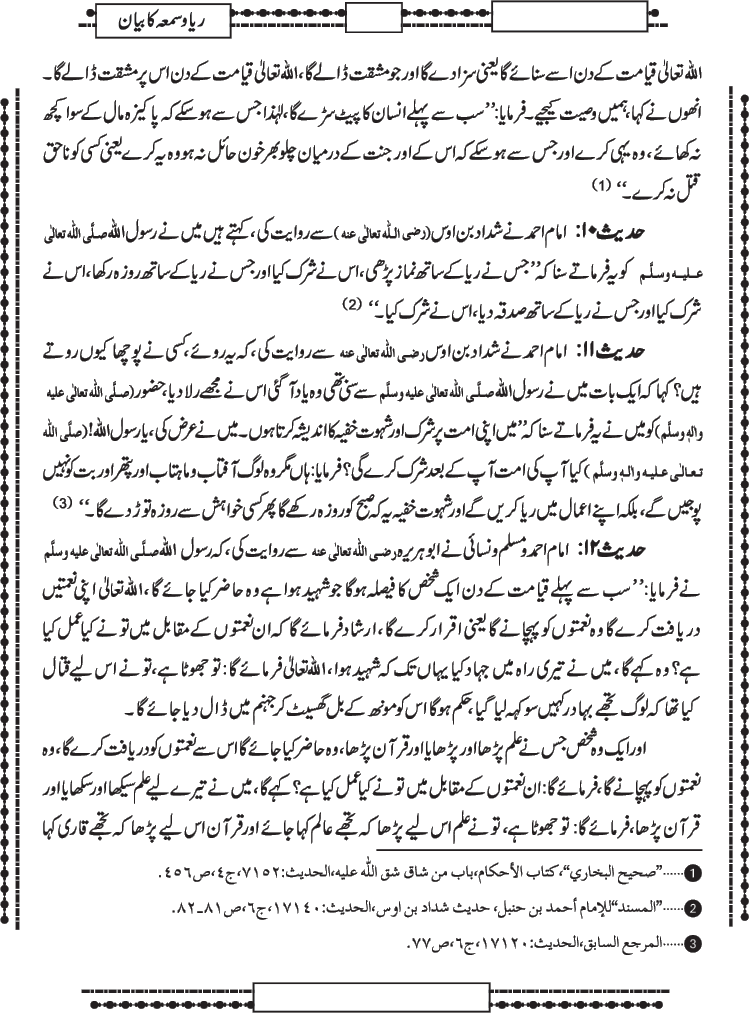 ریا و سمعہ کا بیان
اللہ تعالیٰ قیامت کے دن اسے سنائے گا یعنی سزا دے گا اور جو مشقت ڈالے گا، اللہ تعالیٰ قیامت کے دن اس پر مشقت ڈالے گا۔
انھوں نے کہا، ہمیں وصیت کیجیے۔ فرمایا: ’’سب سے پہلے انسان کا پیٹ سڑے گا، لہٰذا جس سے ہوسکے کہ پاکیزہ مال کے سوا کچھ
نہ کھائے، وہ یہی کرے اور جس سے ہوسکے کہ اس کے اور جنت کے درمیان چلو بھر خون حائل نہ ہو وہ یہ کرے یعنی کسی کو ناحق
قتل نہ کرے۔‘‘ (1)
حدیث ۱۰: امام احمد نے شداد بن اوس (رضی اللہ تعالٰی عنہ) سے روایت کی، کہتے ہیں میں نے رسول اللہ صلَّی اللہ تعالٰی
علیہ وسلَّم کو یہ فرماتے سنا کہ ’’جس نے ریا کے ساتھ نماز پڑھی، اس نے شرک کیا اور جس نے ریا کے ساتھ روزہ رکھا، اس نے
شرک کیا اور جس نے ریا کے ساتھ صدقہ دیا، اس نے شرک کیا۔‘‘ (2)
حدیث ۱۱: امام احمد نے شداد بن اوس رضی اللہ تعالٰی عنہ سے روایت کی، کہ یہ روئے، کسی نے پوچھا کیوں روتے
ہیں؟ کہا کہ ایک بات میں نے رسول اللہ صلَّی اللہ تعالٰی علیہ وسلَّم سے سنی تھی وہ یاد آگئی اس نے مجھے رلا دیا، حضور (صلَّی اللہ تعالٰی علیہ
واٰلہٖ وسلَّم) کو میں نے یہ فرماتے سنا کہ ’’میں اپنی امت پر شرک اور شہوت خفیہ کا اندیشہ کرتا ہوں۔ میں نے عرض کی، یارسول اللہ! (صلَّی اللہ
تعالٰی علیہ واٰلہٖ وسلَّم) کیا آپ کی امت آپ کے بعد شرک کرے گی؟ فرمایا: ہاں مگر وہ لوگ آفتاب و ماہتاب اور پتھر اور بت کو نہیں
پوجیں گے، بلکہ اپنے اعمال میں ریا کریں گے اور شہوت خفیہ یہ کہ صبح کو روزہ رکھے گا پھر کسی خواہش سے روزہ توڑ دے گا۔‘‘ (3)
حدیث ۱۲: امام احمد و مسلم و نسائی نے ابوہریرہ رضی اللہ تعالٰی عنہ سے روایت کی، کہ رسول اللہ صلَّی اللہ تعالٰی علیہ وسلَّم
نے فرمایا: ’’سب سے پہلے قیامت کے دن ایک شخص کا فیصلہ ہوگا جو شہید ہوا ہے وہ حاضر کیا جائے گا، اللہ تعالیٰ اپنی نعمتیں
دریافت کرے گا وہ نعمتوں کو پہچانے گا یعنی اقرار کرے گا، ارشاد فرمائے گا کہ ان نعمتوں کے مقابل میں تو نے کیا عمل کیا
ہے؟ وہ کہے گا، میں نے تیری راہ میں جہاد کیا یہاں تک کہ شہید ہوا، اللہ تعالیٰ فرمائے گا: تو جھوٹا ہے، تو نے اس لیے قتال
کیا تھا کہ لوگ تجھے بہادر کہیں سو کہہ لیا گیا، حکم ہوگا اس کو مونھ کے بل گھسیٹ کر جہنم میں ڈال دیا جائے گا۔
اور ایک وہ شخص جس نے علم پڑھا اور پڑھایا اور قرآن پڑھا، وہ حاضر کیا جائے گا اس سے نعمتوں کو دریافت کرے گا، وہ
نعمتوں کو پہچانے گا، فرمائے گا: ان نعمتوں کے مقابل میں تو نے کیا عمل کیا ہے؟ کہے گا، میں نے تیرے لیے علم سیکھا اور سکھایا اور
قرآن پڑھا، فرمائے گا: تو جھوٹا ہے، تو نے علم اس لیے پڑھا کہ تجھے عالم کہا جائے اور قرآن اس لیے پڑھا کہ تجھے قاری کہا
1 ......’’صحیح البخاري‘‘، کتاب الأحکام، باب من شاق شق اللّٰہ علیہ، الحدیث: ٧١٥٢، ج٤، ص٤٥٦.
2 ......’’المسند‘‘ للإمام أحمد بن حنبل، حدیث شداد بن اوس، الحدیث: ١٧١٤٠، ج٦، ص٨١۔٨٢.
3 ......المرجع السابق، الحدیث: ١٧١٢٠، ج٦، ص٧٧.